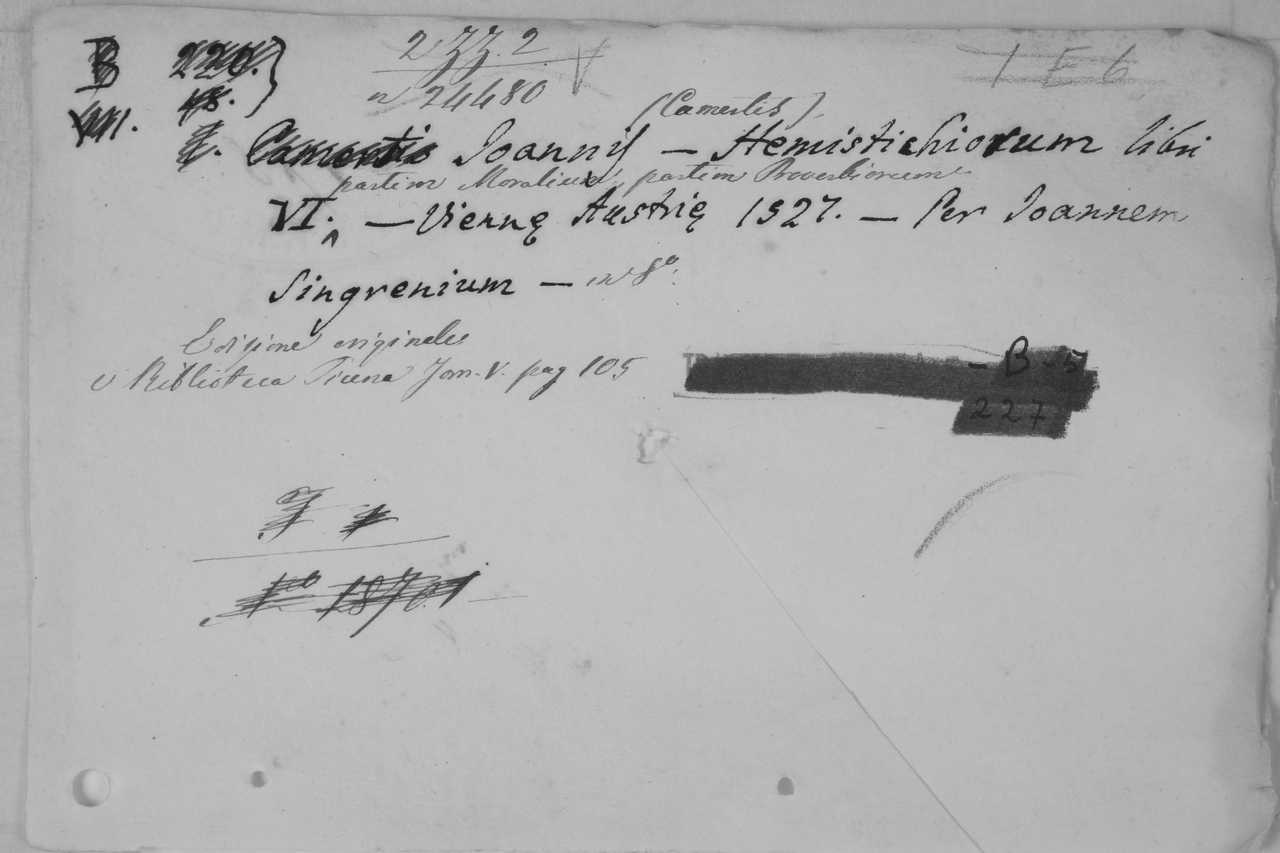 B 220. 2 ZZ. 2 V I E 6
VIII. 18. n 24480
(Camertis)
7. Camertis Joannis — Hemistichiorum libri
partim Moralium, partim Proverbiorum
VI. — Viennę Austrię 1527. — Per Joannem
Singrenium — in 8°.
Edizione originale
v Biblioteca Picena Tom. V. pag 105
- B - 5
227
N° 18701